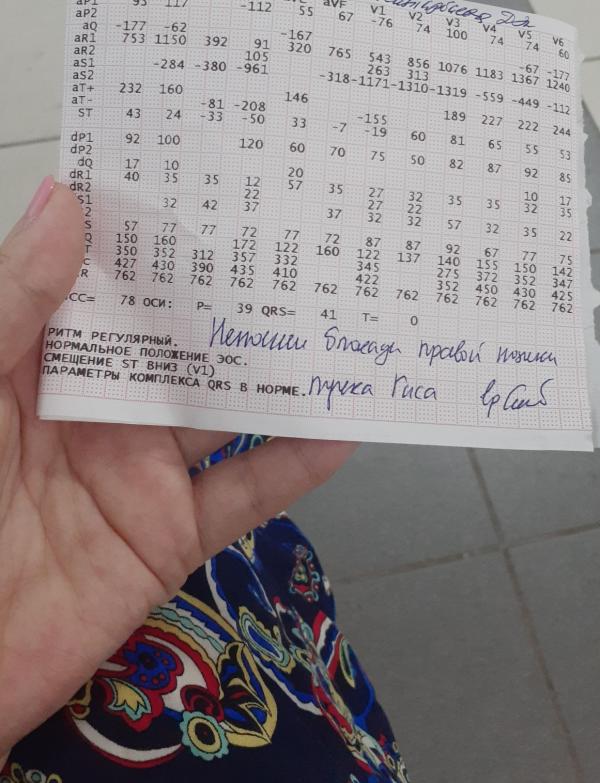 aVF V1 V2 V3 V4 V5 V6
aP1 93 117 -112 55 67 -76 74 100 74 74 60
aP2
aQ -177 -62 -167 -67 -177
aR1 753 1150 392 91 320 765 543 856 1076 1183 1367 1240
aR2 105 263 313
aS1 -284 -380 -961 -318 -1171 -1310 -1319 -559 -449 -112
aS2
aT+ 232 160 146 189 227 222 244
aT- -81 -208 -155
ST 43 24 -33 -50 33 -7 -19 60 81 65 55 53
dP1 92 100 120 60 70 75 50 82 87 92 85
dP2
dQ 17 10 20 10 17
dR1 40 35 35 12 57 35 27 32 35 35 32 35
dR2 22 27 22
S1 32 42 37 37 32 32 57 32 35 22
2
S 57 77 77 72 77 72 87 87 92 67 77 75
Q 150 160 172 122 160 122 137 140 155 150 142
T 350 352 312 357 332 345 275 372 352 347
C 427 430 390 435 410 422 352 450 430 425
R 762 762 762 762 762 762 762 762 762 762 762 762
ЧСС= 78 ОСИ: P= 39 QRS= 41 T= 0
РИТМ РЕГУЛЯРНЫЙ.
НОРМАЛЬНОЕ ПОЛОЖЕНИЕ ЭОС.
СМЕЩЕНИЕ ST ВНИЗ (V1)
ПАРАМЕТРЫ КОМПЛЕКСА QRS В НОРМЕ.
блокады правой ножки
пучка Гиса